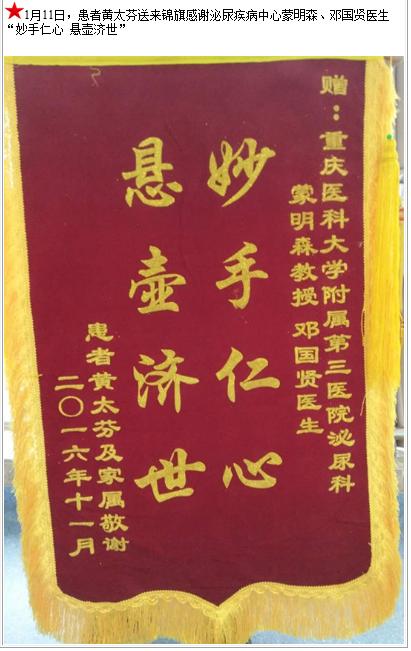 ★1月11日，患者黄太芬送来锦旗感谢泌尿疾病中心蒙明森、邓国贤医生
“妙手仁心 悬壶济世”
赠：重庆医科大学附属第三医院泌尿科
蒙明森教授 邓国贤医生
妙手仁心
悬壶济世
患者黄太芬及家属敬谢
二〇一六年十一月